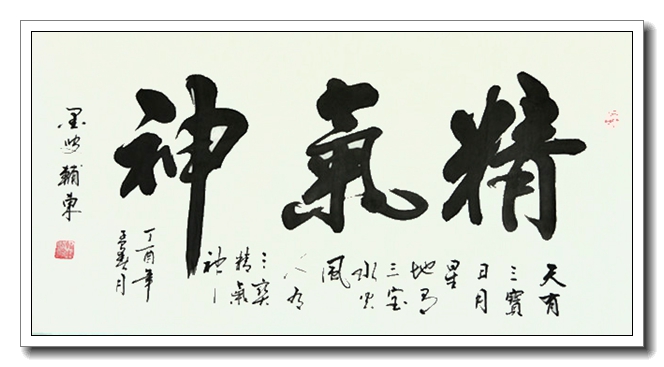 精氣神
天有
三寶
日月
星
地有
三宝
水火
風
人有
三寶
精氣
神
丁酉年
孟春月
墨
輔東